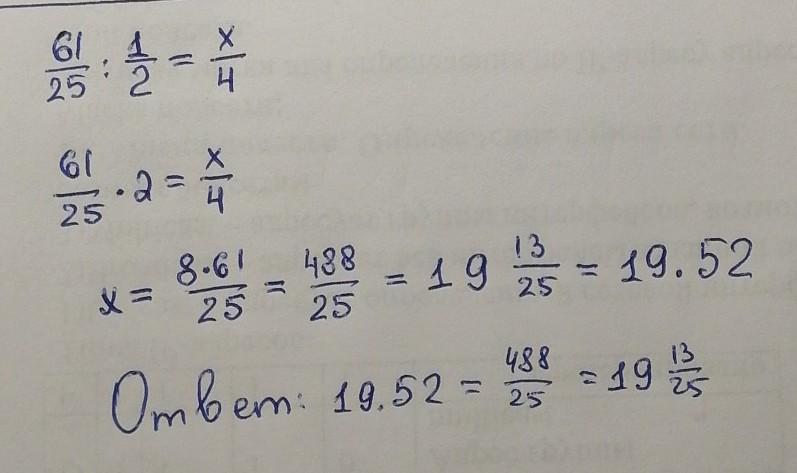 61/25 : 1/2 = x/4
61/25 · 2 = x/4
x = 8·61/25 = 488/25 = 19 13/25 = 19.52
Ответ: 19.52 = 488/25 = 19 13/25